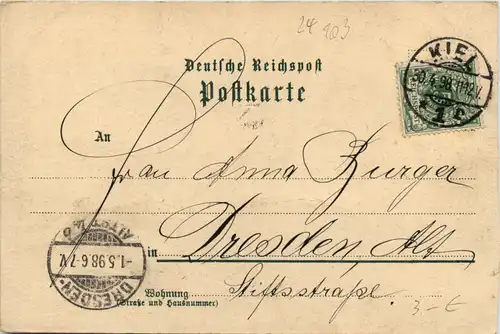 24 203
Deutsche Reichspost
Postkarte
KIEL
30.4.98.11-12V.
* 1 c
An
Frau Anna Burger
in Dresden Alt
Stiftsstraße.
Wohnung
(Straße und Hausnummer)
ALTST.
-1.5.98 6-7V.
DRESDEN-
3-€